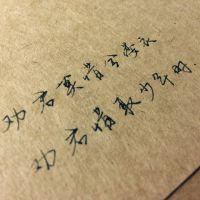 劝君莫惜金缕衣
劝君惜取少年时.